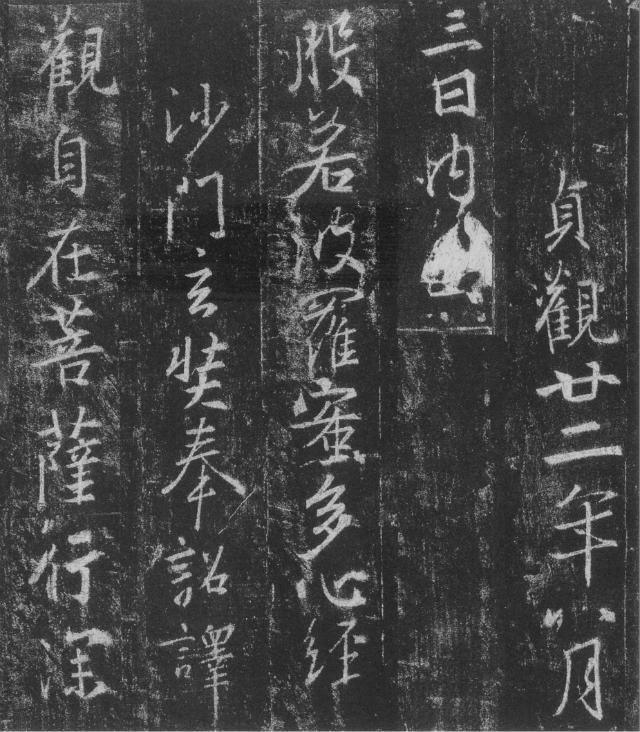 貞觀廿二年八月
三日内
般若波羅蜜多心経
沙門玄奘奉詔譯
觀自在菩薩行深